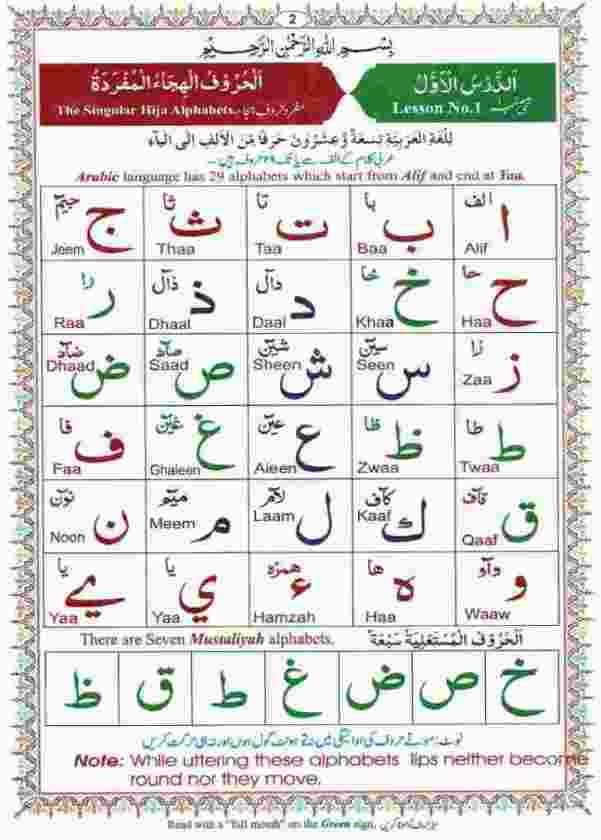 2
بِسْمِ اللهِ الرَّحْمٰنِ الرَّحِيْمِ
اَلدَّرْسُ الْاَوَّلُ
Lesson No.1
اَلْحُرُوْفُ الْهِجَاءُ الْمُفْرَدَةُ
The Singular Hija Alphabets.
لِلُّغَةِ الْعَرَبِيَّةِ تِسْعَةٌ وَّعِشْرُوْنَ حَرْفًا مِّنَ الْاَلِفِ اِلَى الْيَاءِ
عربی کلام کے الف سے یا تک ۲۹ حروف ہیں۔
Arabic language has 29 alphabets which start from Alif and end at Yaa.
ا الف Alif ب با Baa ت تا Taa ث ثا Thaa ج جيم Jeem
ح حا Haa خ خا Khaa د دال Daal ذ ذال Dhaal ر را Raa
ز زا Zaa س سين Seen ش شين Sheen ص صاد Saad ض ضاد Dhaad
ط طا Twaa ظ ظا Zwaa ع عين Aieen غ غين Ghaieen ف فا Faa
ق قاف Qaaf ك كاف Kaaf ل لام Laam م ميم Meem ن نون Noon
و واو Waaw ه ها Haa ء همزه Hamzah ي يا Yaa ے يا Yaa
There are Seven Mustaliyah alphabets. اَلْحُرُوْفُ الْمُسْتَعْلِيَةُ سَبْعَةٌ
خ ص ض غ ط ق ظ
نوٹ: موٹے حروف کی ادائیگی میں نہ تو ہونٹ گول ہوں اور نہ ہی حرکت کریں
Note: While uttering these alphabets lips neither become
round nor they move.
Read with a "full mouth" on the Green sign.